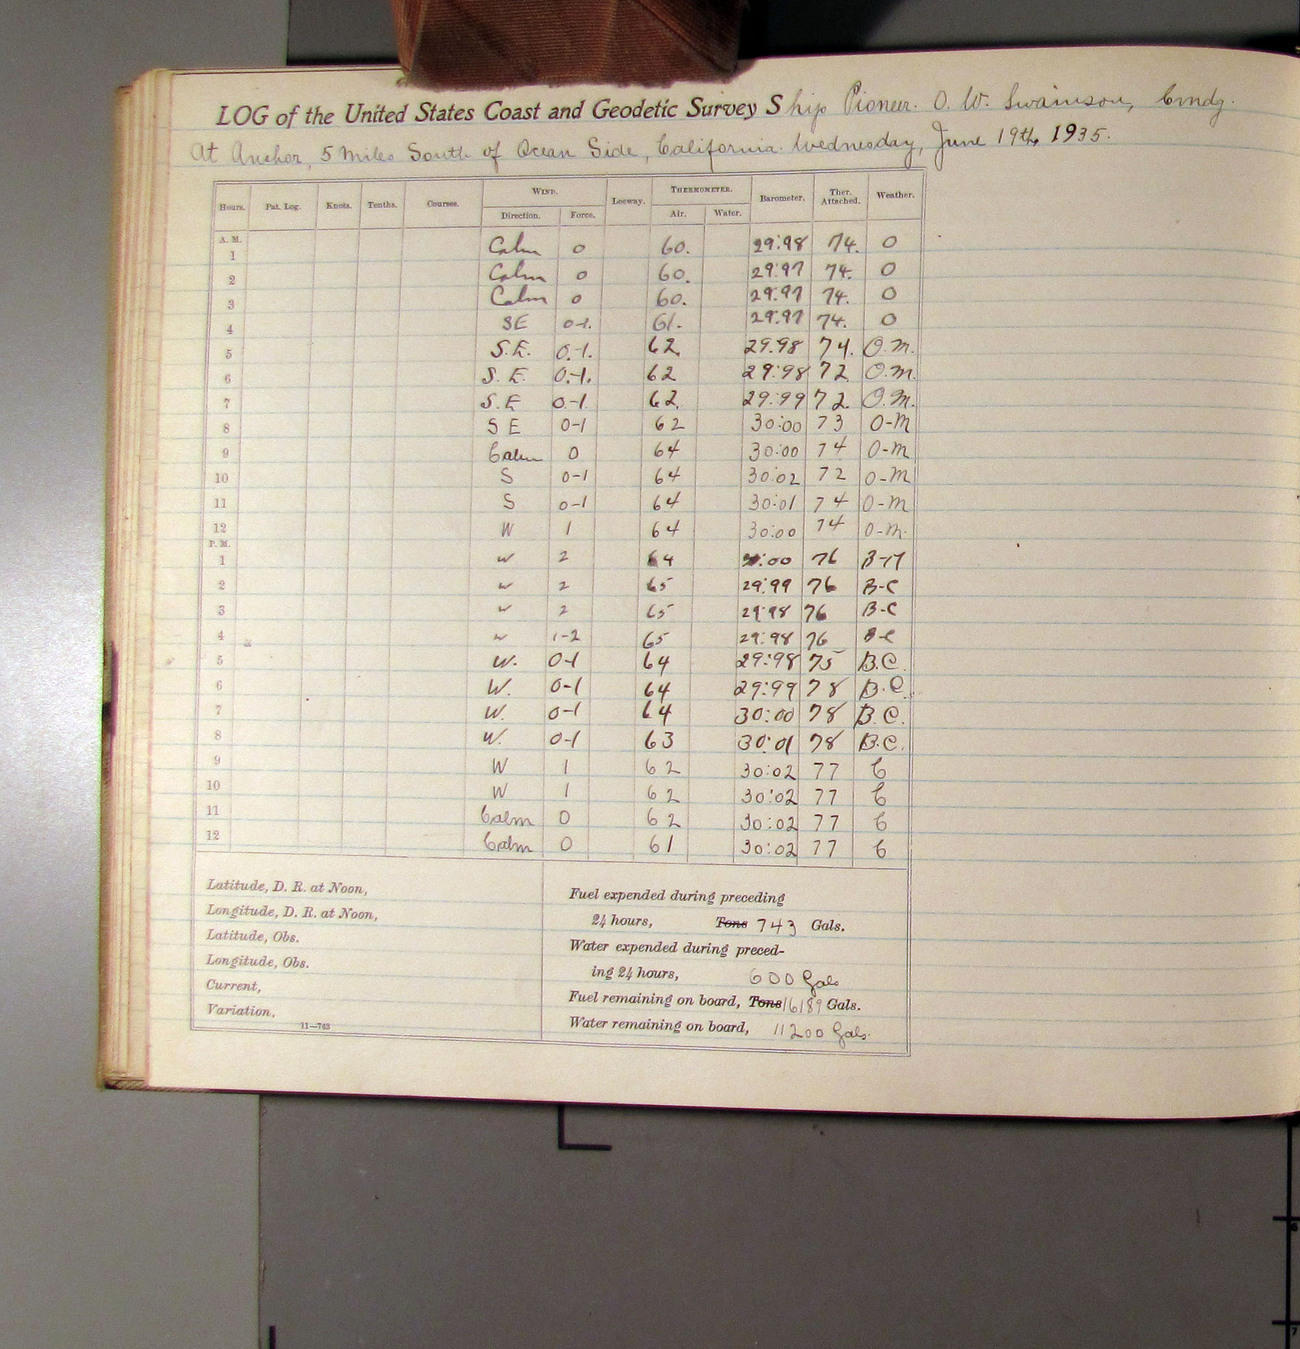 LOG of the United States Coast and Geodetic Survey Ship Pioneer. O. W. Swainson, Cmdg.
At Anchor, 5 Miles South of Ocean Side, California. Wednesday, June 19th, 1935.
Hours. Pat. Log. Knots. Tenths. Courses. WIND. Leeway. THERMOMETER. Barometer. Ther. Attached. Weather.
Direction. Force. Air. Water.
A. M.
1 Calm 0 60. 29:98 74. O
2 Calm 0 60. 29:97 74. O
3 Calm 0 60. 29:97 74. O
4 SE 0-1. 61. 29:97 74. O
5 S.E. 0-1. 62 29:98 74. O.M.
6 S.E. 0-1. 62 29:98 72 O.M.
7 S.E 0-1 62 29:99 72 O.M.
8 SE 0-1 62 30:00 73 O-M
9 Calm 0 64 30:00 74 O-M
10 S 0-1 64 30:02 72 O-M
11 S 0-1 64 30:01 74 O-M
12 W 1 64 30:00 74 O-M.
P. M.
1 W 2 64 :00 76
2 W 2 65 29:99 76 B-C
3 W 2 65 29:98 76 B-C
4 W 1-2 65 29:98 76 B-C
5 W. 0-1 64 29:98 75 B.C.
6 W. 0-1 64 29:99 78 B.C.
7 W. 0-1 64 30:00 78 B.C.
8 W. 0-1 63 30:01 78 B.C.
9 W 1 62 30:02 77 C
10 W 1 62 30:02 77 C
11 Calm 0 62 30:02 77 C
12 Calm 0 61 30:02 77 C
Latitude, D. R. at Noon,
Longitude, D. R. at Noon,
Latitude, Obs.
Longitude, Obs.
Current,
Variation,
11—763
Fuel expended during preceding
24 hours, Tons 743 Gals.
Water expended during preced-
ing 24 hours, 600 Gals
Fuel remaining on board, Tons 16189 Gals.
Water remaining on board, 11200 Gals.
6
7